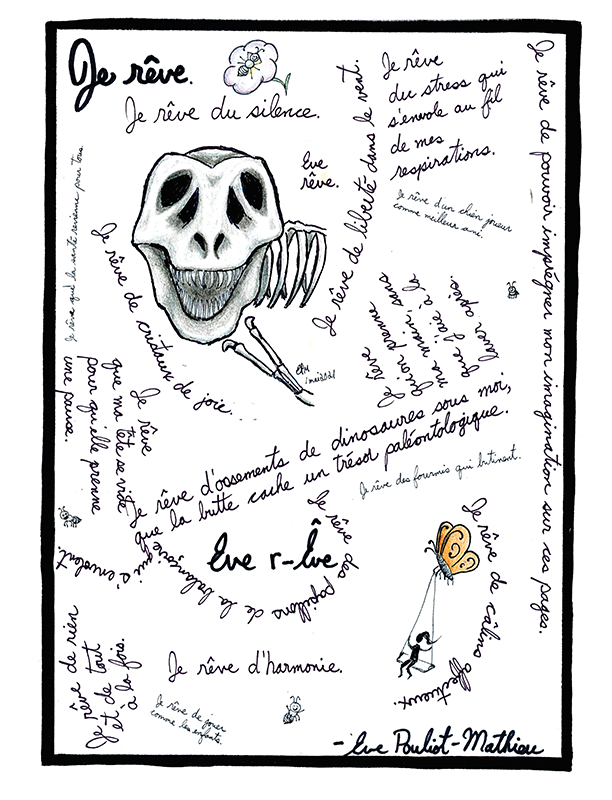 Je rêve.
Je rêve du silence.
Eve
rêve.
Je rêve de liberté dans le vent.
Je rêve
du stress qui
s'envole au fil
de mes
respirations.
Je rêve d'un chien joueur
comme meilleur ami.
Je rêve de pouvoir imprégner mon imagination sur ces pages.
Je rêve que la santé revienne pour tous.
Je rêve de cristaux de joie...
Je rêve
qu'on prenne
ma main, sans
que j'aie à la
laver après.
Je rêve
que ma tête se vide
pour qu'elle prenne
une pause.
Je rêve d'ossements de dinosaures sous moi,
que la butte cache un trésor paléontologique.
Je rêve des fourmis qui butinent.
Je rêve des papillons de la balançoire qui s'envolent.
Eve r-Êve
Je rêve de câlins affectueux.
Je rêve de rien
et de tout
à la fois.
Je rêve d'harmonie.
Je rêve de jouer
comme les enfants.
-Eve Pouliot-Mathieu